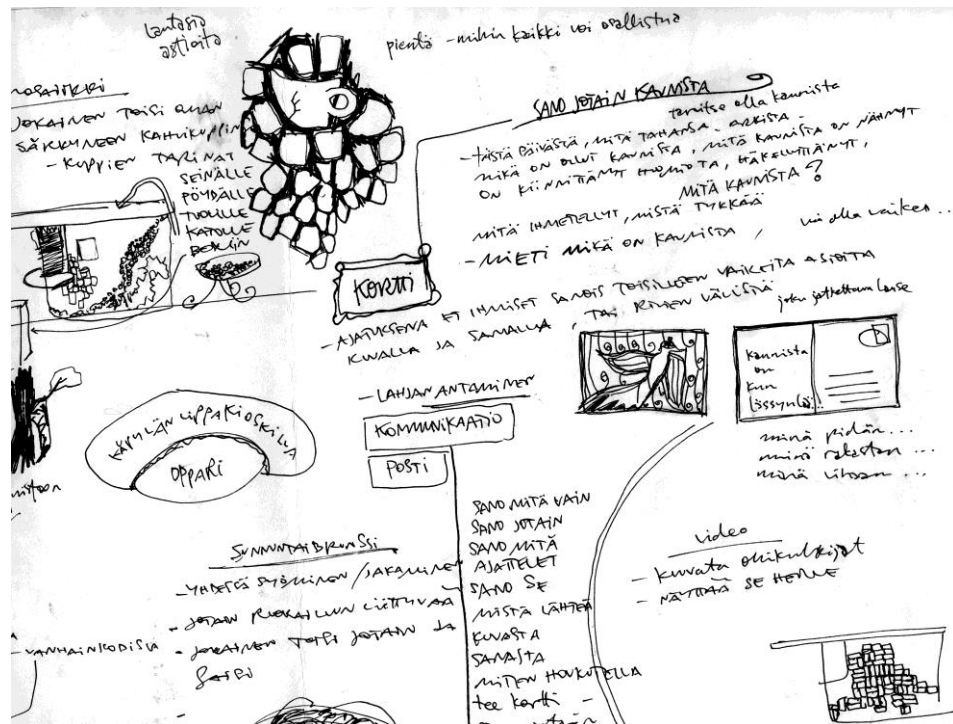 Lautasia
astioita
pientä - mihin kaikki voi osallistua
JOKAINEN TOISI OMAN
SÄRKYNEEN KAHVIKUPPIN
- KUPPIEN TARINAT
SEINÄLLE
PÖYDÄLLE
TUOLILLE
KATOLLE
SANO JOTAIN KAUNISTA
tarvitse olla kaunista
- TÄSTÄ PÄIVÄSTÄ, MITÄ TAHANSA - ARKISTA -
MIKÄ ON OLLUT KAUNISTA, MITÄ KAUNISTA ON NÄHNYT
ON KIINNITTÄNYT HUOMIOTA, HÄKELLYTTÄNYT,
MITÄ KAUNISTA?
MITÄ IHMETELLYT, MISTÄ TYKKÄÄ
- MIETI MIKÄ ON KAUNISTA, voi olla vaikea...
KORTTI
- AJATUKSENA ET IHMISET SANOIS TOISILLEEN VAIKEITA ASIOITA
KUVALLA JA SANALLA, TAI RIVIEN VÄLISTÄ
joku jatkettava lause
kaunista
on
kun
lässynlää...
minä pidän...
minä rakastan...
minä vihaan...
- LAHJAN ANTAMINEN
KOMMUNIKAATIO
POSTI
KÄPYLÄN LIPPAKIOSKILLA
OPPARI
SUNNUNTAIBRUNSSI
- YHDESSÄ SYÖMINEN / JAKAMINEN
- JOTAIN RUOKAILUUN LIITTYVÄÄ
- JOKAINEN TOISI JOTAIN JA
- VANHAINKODISSA
SANO MITÄ VAIN
SANO JOTAIN
SANO MITÄ
AJATTELET
SANO SE
MISTÄ LÄHTEÄ
KUVASTA
SANASTA
MITEN HOUKUTELLA
tee kortti -
video
- kuvata ohikulkijat
- NÄYTTÄÄ SE HEILLE